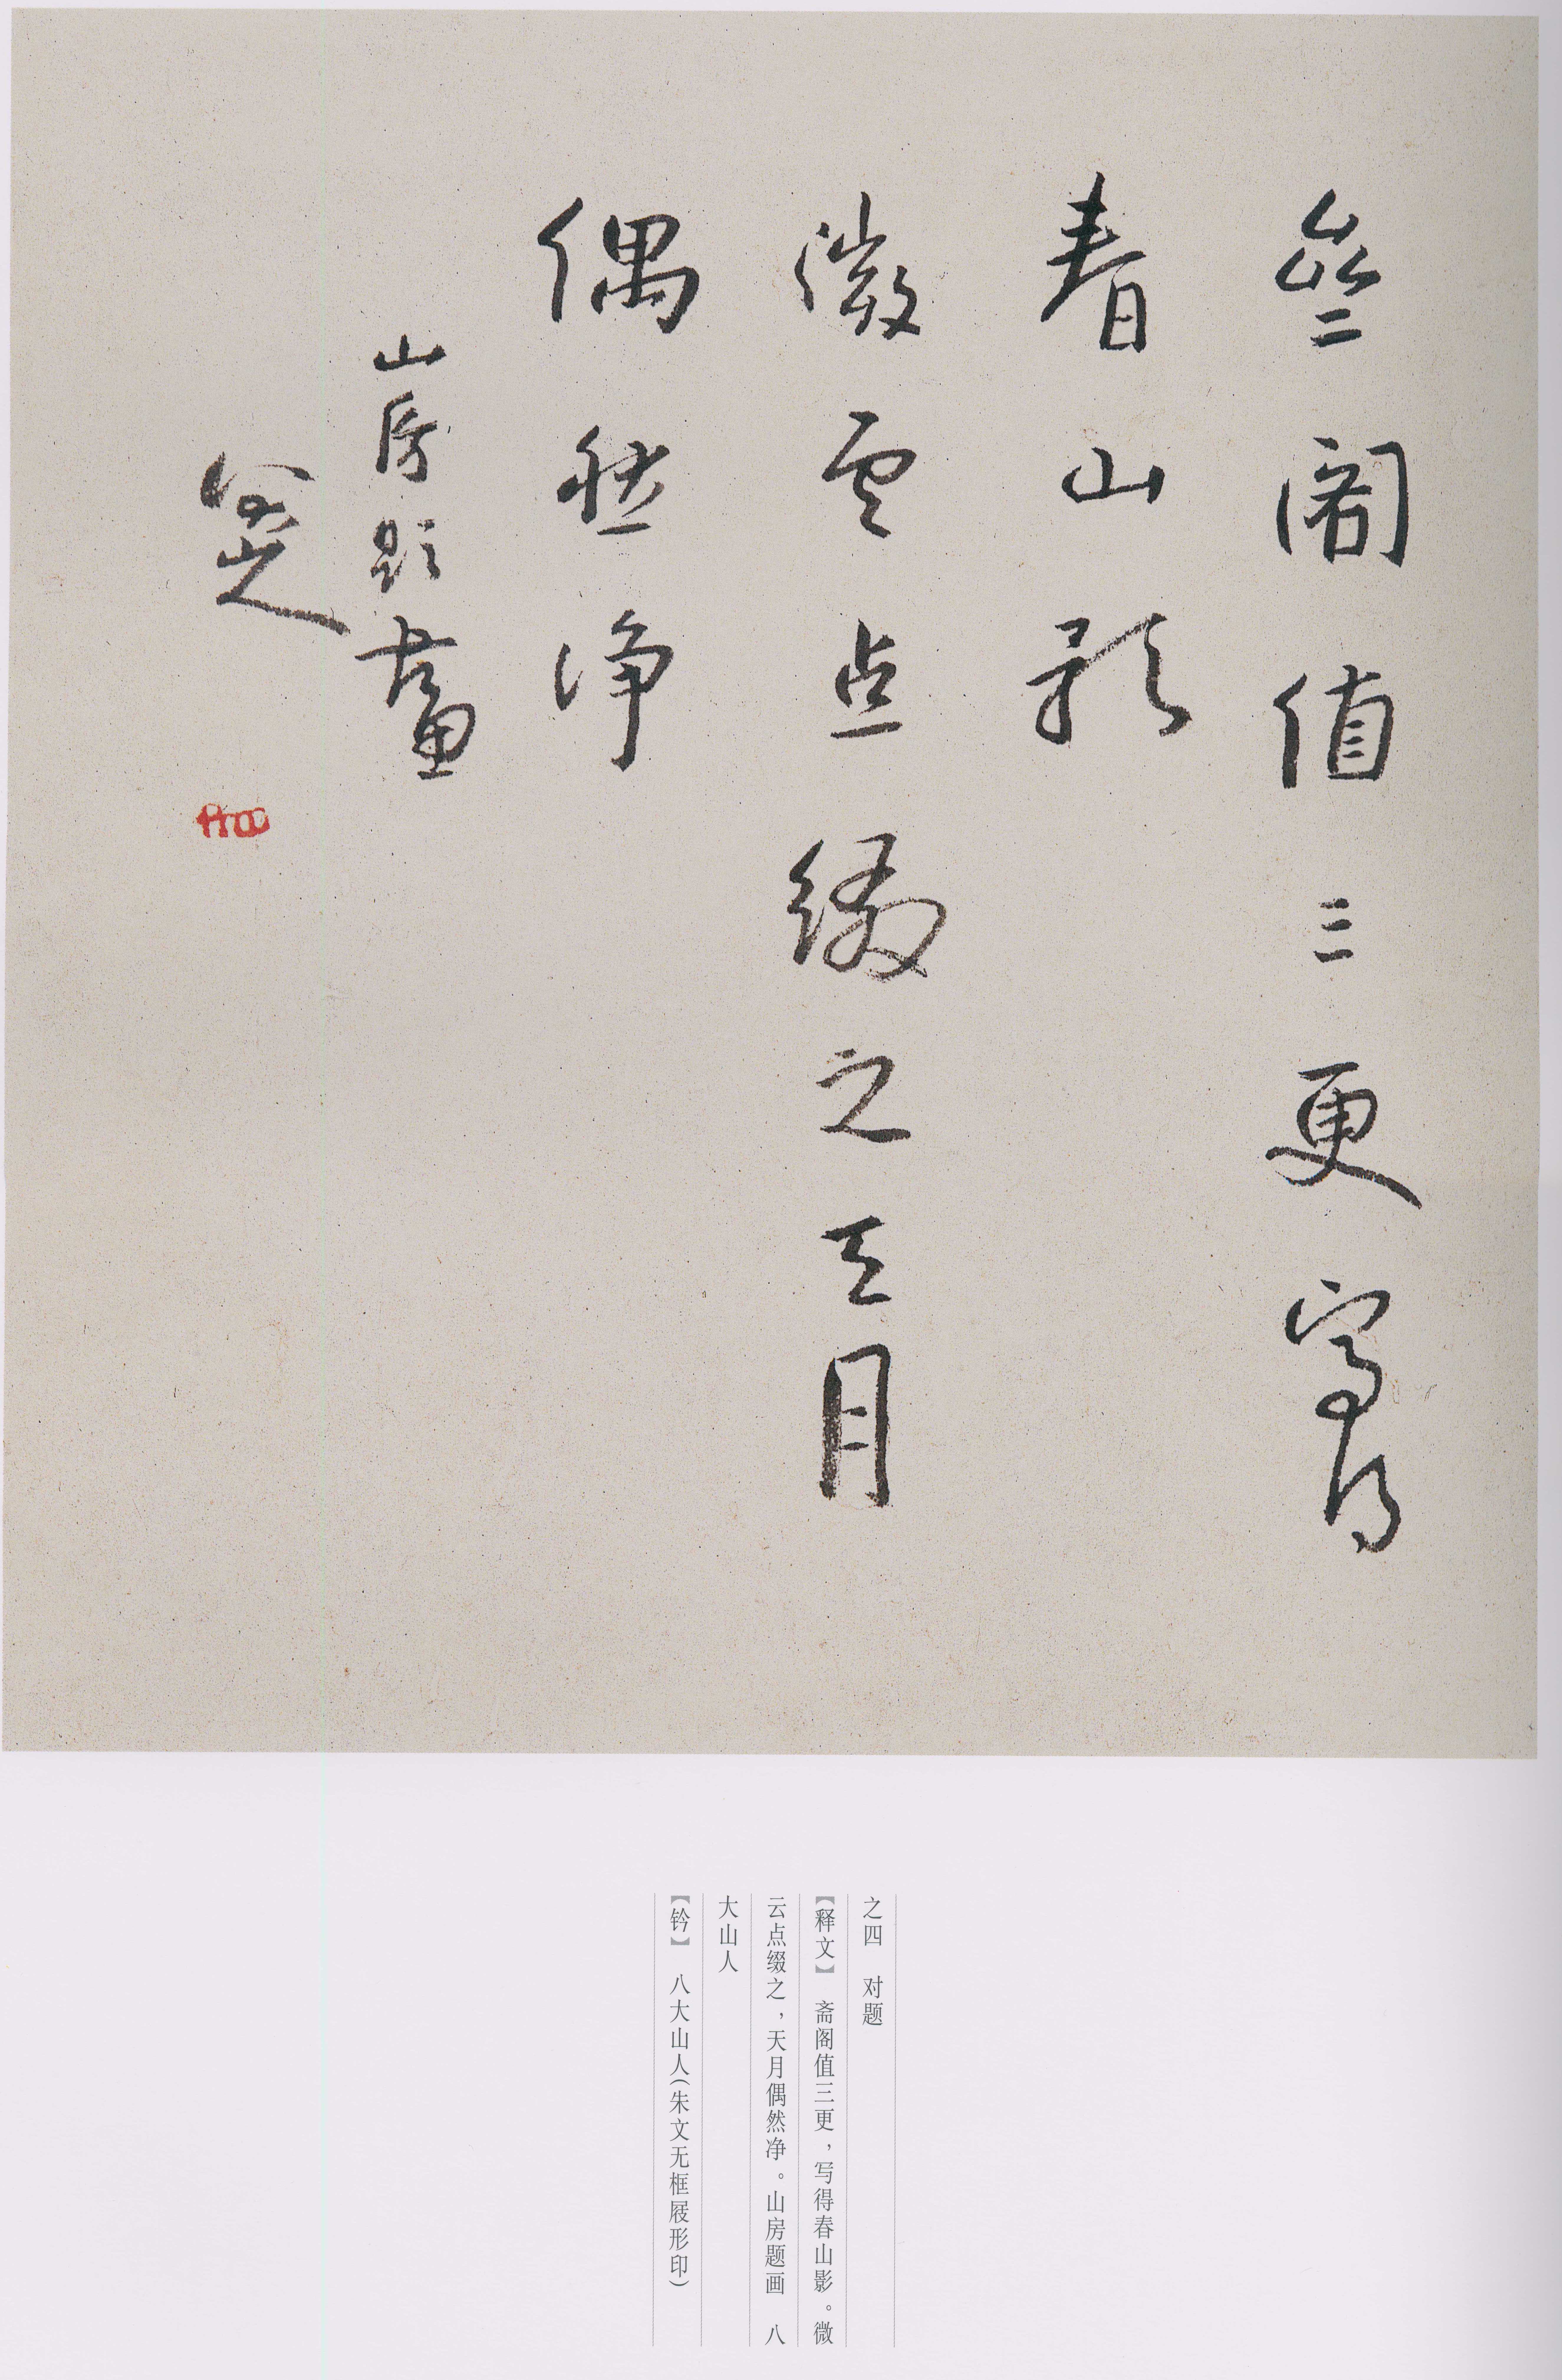 斋阁值三更写得
春山影
微云点缀之天月
偶然净
山房题畫
八大山人
之四　对题
【释文】　斋阁值三更，写得春山影。微
云点缀之，天月偶然净。山房题画　八
大山人
【钤】　八大山人（朱文无框屐形印）